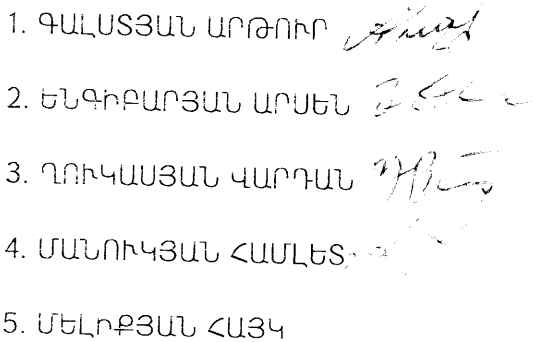 1. ԳԱԼՍՏՅԱՆ ԱՐԹՈՒՐ
2. ԵՆԳԻԲԱՐՅԱՆ ԱՐՍԵՆ
3. ՂՈՒԿԱՍՅԱՆ ՎԱՐԴԱՆ
4. ՄԱՆՈՒԿՅԱՆ ՀԱՄԼԵՏ
5. ՄԵԼԻՔՅԱՆ ՀԱՅԿ